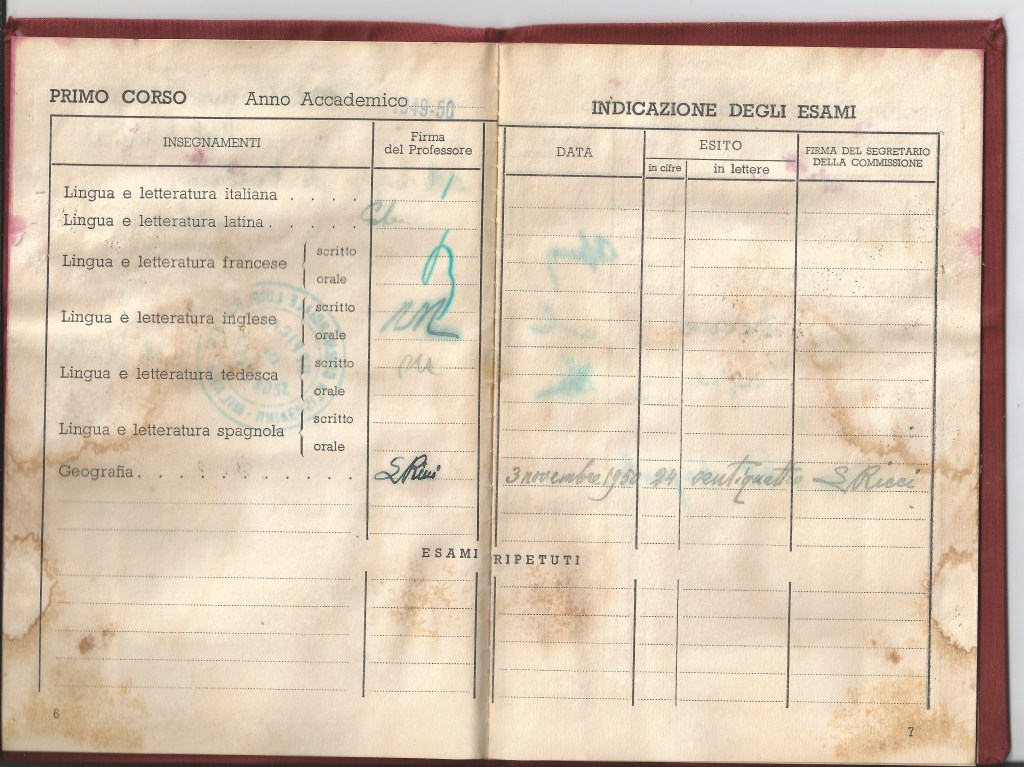 PRIMO CORSO Anno Accademico 1949-50
INSEGNAMENTI
Firma
del Professore
Lingua e letteratura italiana . . . .
Lingua e letteratura latina . . . . .
Lingua e letteratura francese
scritto
orale
Lingua e letteratura inglese
scritto
orale
Lingua e letteratura tedesca
scritto
orale
Lingua e letteratura spagnola
scritto
orale
Geografia . . . . . . . . . . . S Ricci
INDICAZIONE DEGLI ESAMI
DATA
ESITO
in cifre
in lettere
FIRMA DEL SEGRETARIO
DELLA COMMISSIONE
3 novembre 1950 24 ventiquattro S Ricci
ESAMI RIPETUTI
6
7